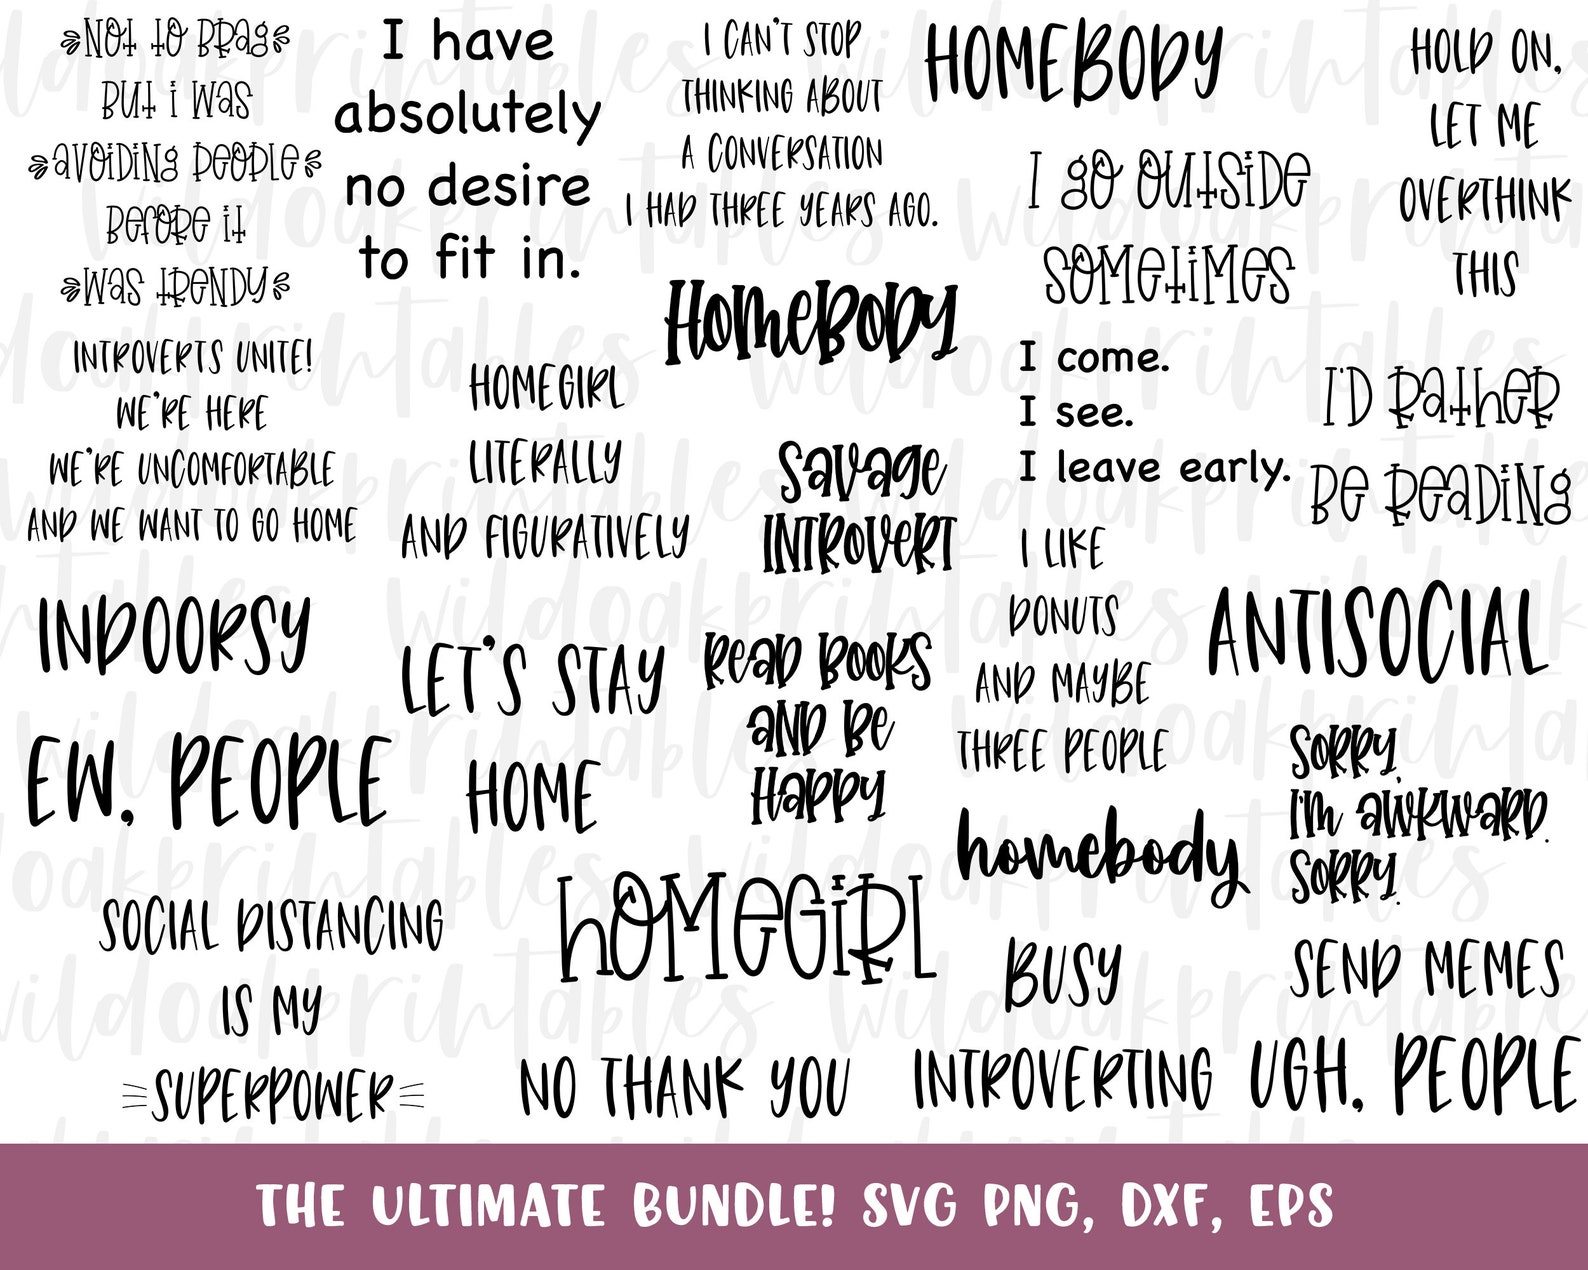 NOT TO BRAG
BUT I WAS
AVOIDING PEOPLE
BEFORE IT
WAS TRENDY
I have
absolutely
no desire
to fit in.
I CAN'T STOP
THINKING ABOUT
A CONVERSATION
I HAD THREE YEARS AGO.
HOMEBODY
I GO OUTSIDE
SOMETIMES
HOLD ON,
LET ME
OVERTHINK
THIS
INTROVERTS UNITE!
WE'RE HERE
WE'RE UNCOMFORTABLE
AND WE WANT TO GO HOME
HOMEGIRL
LITERALLY
AND FIGURATIVELY
HOMEBODY
SAVAGE
INTROVERT
I come.
I see.
I leave early.
I'D RATHER
BE READING
INDOORSY
LET'S STAY
HOME
READ BOOKS
AND BE
HAPPY
I LIKE
DONUTS
AND MAYBE
THREE PEOPLE
ANTISOCIAL
EW, PEOPLE
homebody
SORRY,
I'M AWKWARD.
SORRY.
SOCIAL DISTANCING
IS MY
SUPERPOWER
HOMEGIRL
BUSY
INTROVERTING
SEND MEMES
NO THANK YOU
UGH, PEOPLE
THE ULTIMATE BUNDLE! SVG PNG, DXF, EPS
wildoakprintables